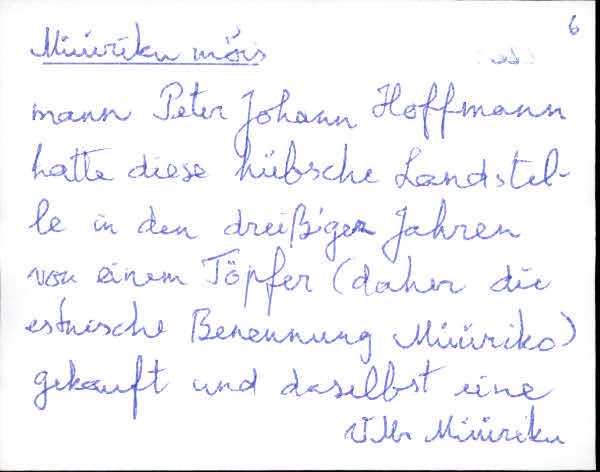 6
Müüriku mõis
mann Peter Johann Hoffmann
hatte diese hübsche Landstel-
le in den dreißiger Jahren
von einem Töpfer (daher die
estnische Benennung Müüriko)
gekauft und daselbst eine
Müüriku